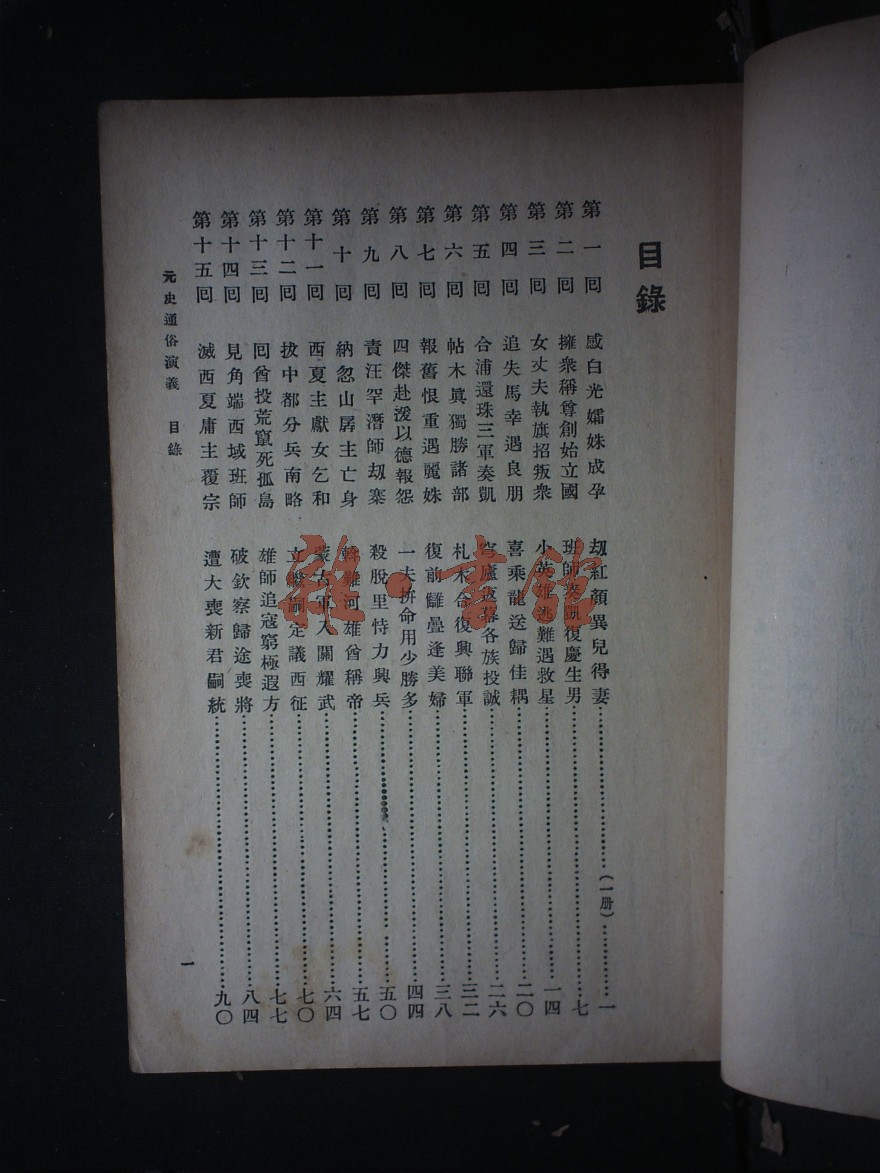 目錄
第一回 感白光孀姝成孕 劫紅顏異兒得妻……(一册)……一
第二回 擁衆稱尊創始立國 班師奏凱復慶生男……七
第三回 女丈夫執旗招叛衆 小英雄逃難遇救星……一四
第四回 追失馬幸遇良朋 喜乘龍送歸佳耦……二〇
第五回 合浦還珠三軍奏凱 穹廬返幕各族投誠……二六
第六回 帖木眞獨勝諸部 札木合復興聯軍……三二
第七回 報舊恨重遇麗姝 復前讎疊逢美婦……三八
第八回 四傑赴援以德報怨 一夫拚命用少勝多……四四
第九回 責汪罕潛師劫寨 殺脫里恃力興兵……五〇
第十回 納忽山孱主亡身 斡難河雄酋稱帝……五七
第十一回 西夏主獻女乞和 蒙古軍入關耀武……六四
第十二回 拔中都分兵南略 立繼嗣定議西征……七〇
第十三回 回酋投荒竄死孤島 雄師追寇窮極遐方……七七
第十四回 見角端西域班師 破欽察歸途喪將……八四
第十五回 滅西夏庸主覆宗 遭大喪新君嗣統……九〇
元史通俗演義 目錄
一
雜·書館